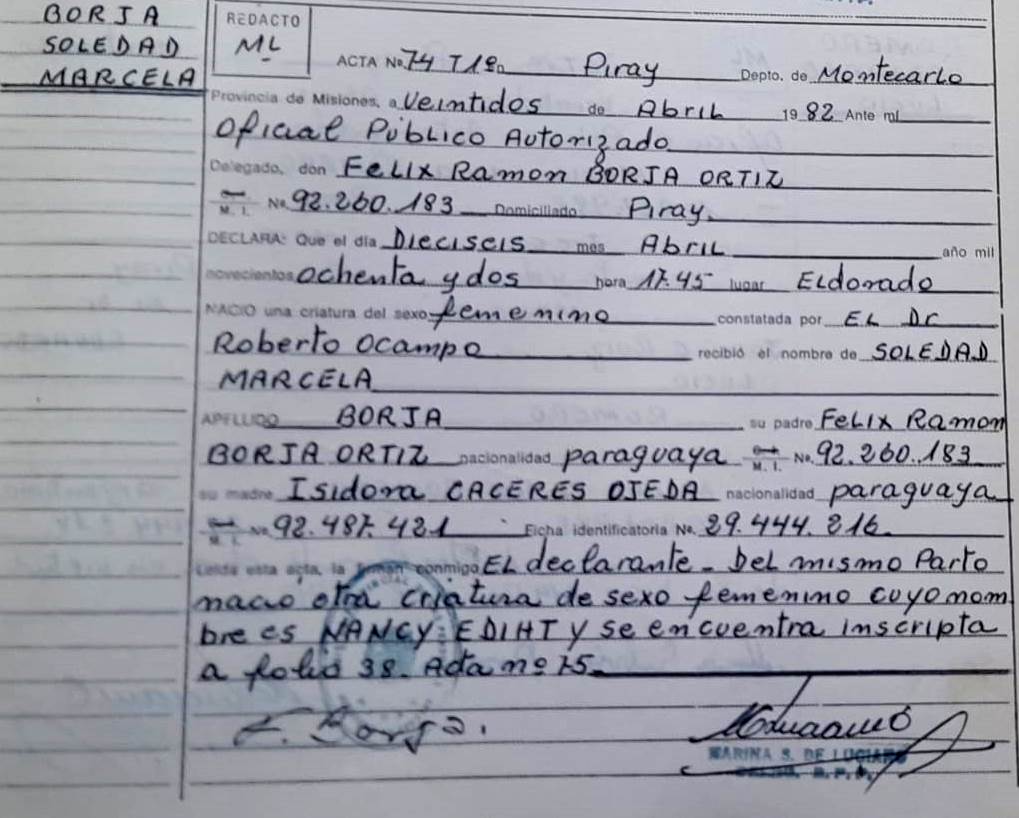 BORJA
SOLEDAD
MARCELA
REDACTO
ML
ACTA No. 74 T 1º Piray Depto. de Montecarlo
Provincia de Misiones, a Veintidos de Abril 19 82 Ante mi
Oficial Público Autorizado
Delegado, don Felix Ramon BORJA ORTIZ
M. I. No. 92.260.183 Domiciliado Piray.
DECLARA: Que el día Dieciseis mes Abril año mil
novecientos ochenta y dos hora 17.45 lugar Eldorado
NACIO una criatura del sexo femenino constatada por EL Dr
Roberto Ocampo recibió el nombre de SOLEDAD
MARCELA
APELLIDO BORJA su padre Felix Ramon
BORJA ORTIZ nacionalidad paraguaya M. I. No. 92.260.183
su madre Isidora CACERES OJEDA nacionalidad paraguaya
M. I. No. 92.487.421 Ficha identificatoria No. 29.444.216.
Leída esta acta, la firman conmigo EL declarante - Del mismo Parto
nacio otra criatura de sexo femenino cuyo nom
bre es NANCY EDIHT y se encuentra inscripta
a folio 38. Acta nº 75
F. Borja.
MARINA S. DE LUCIANO